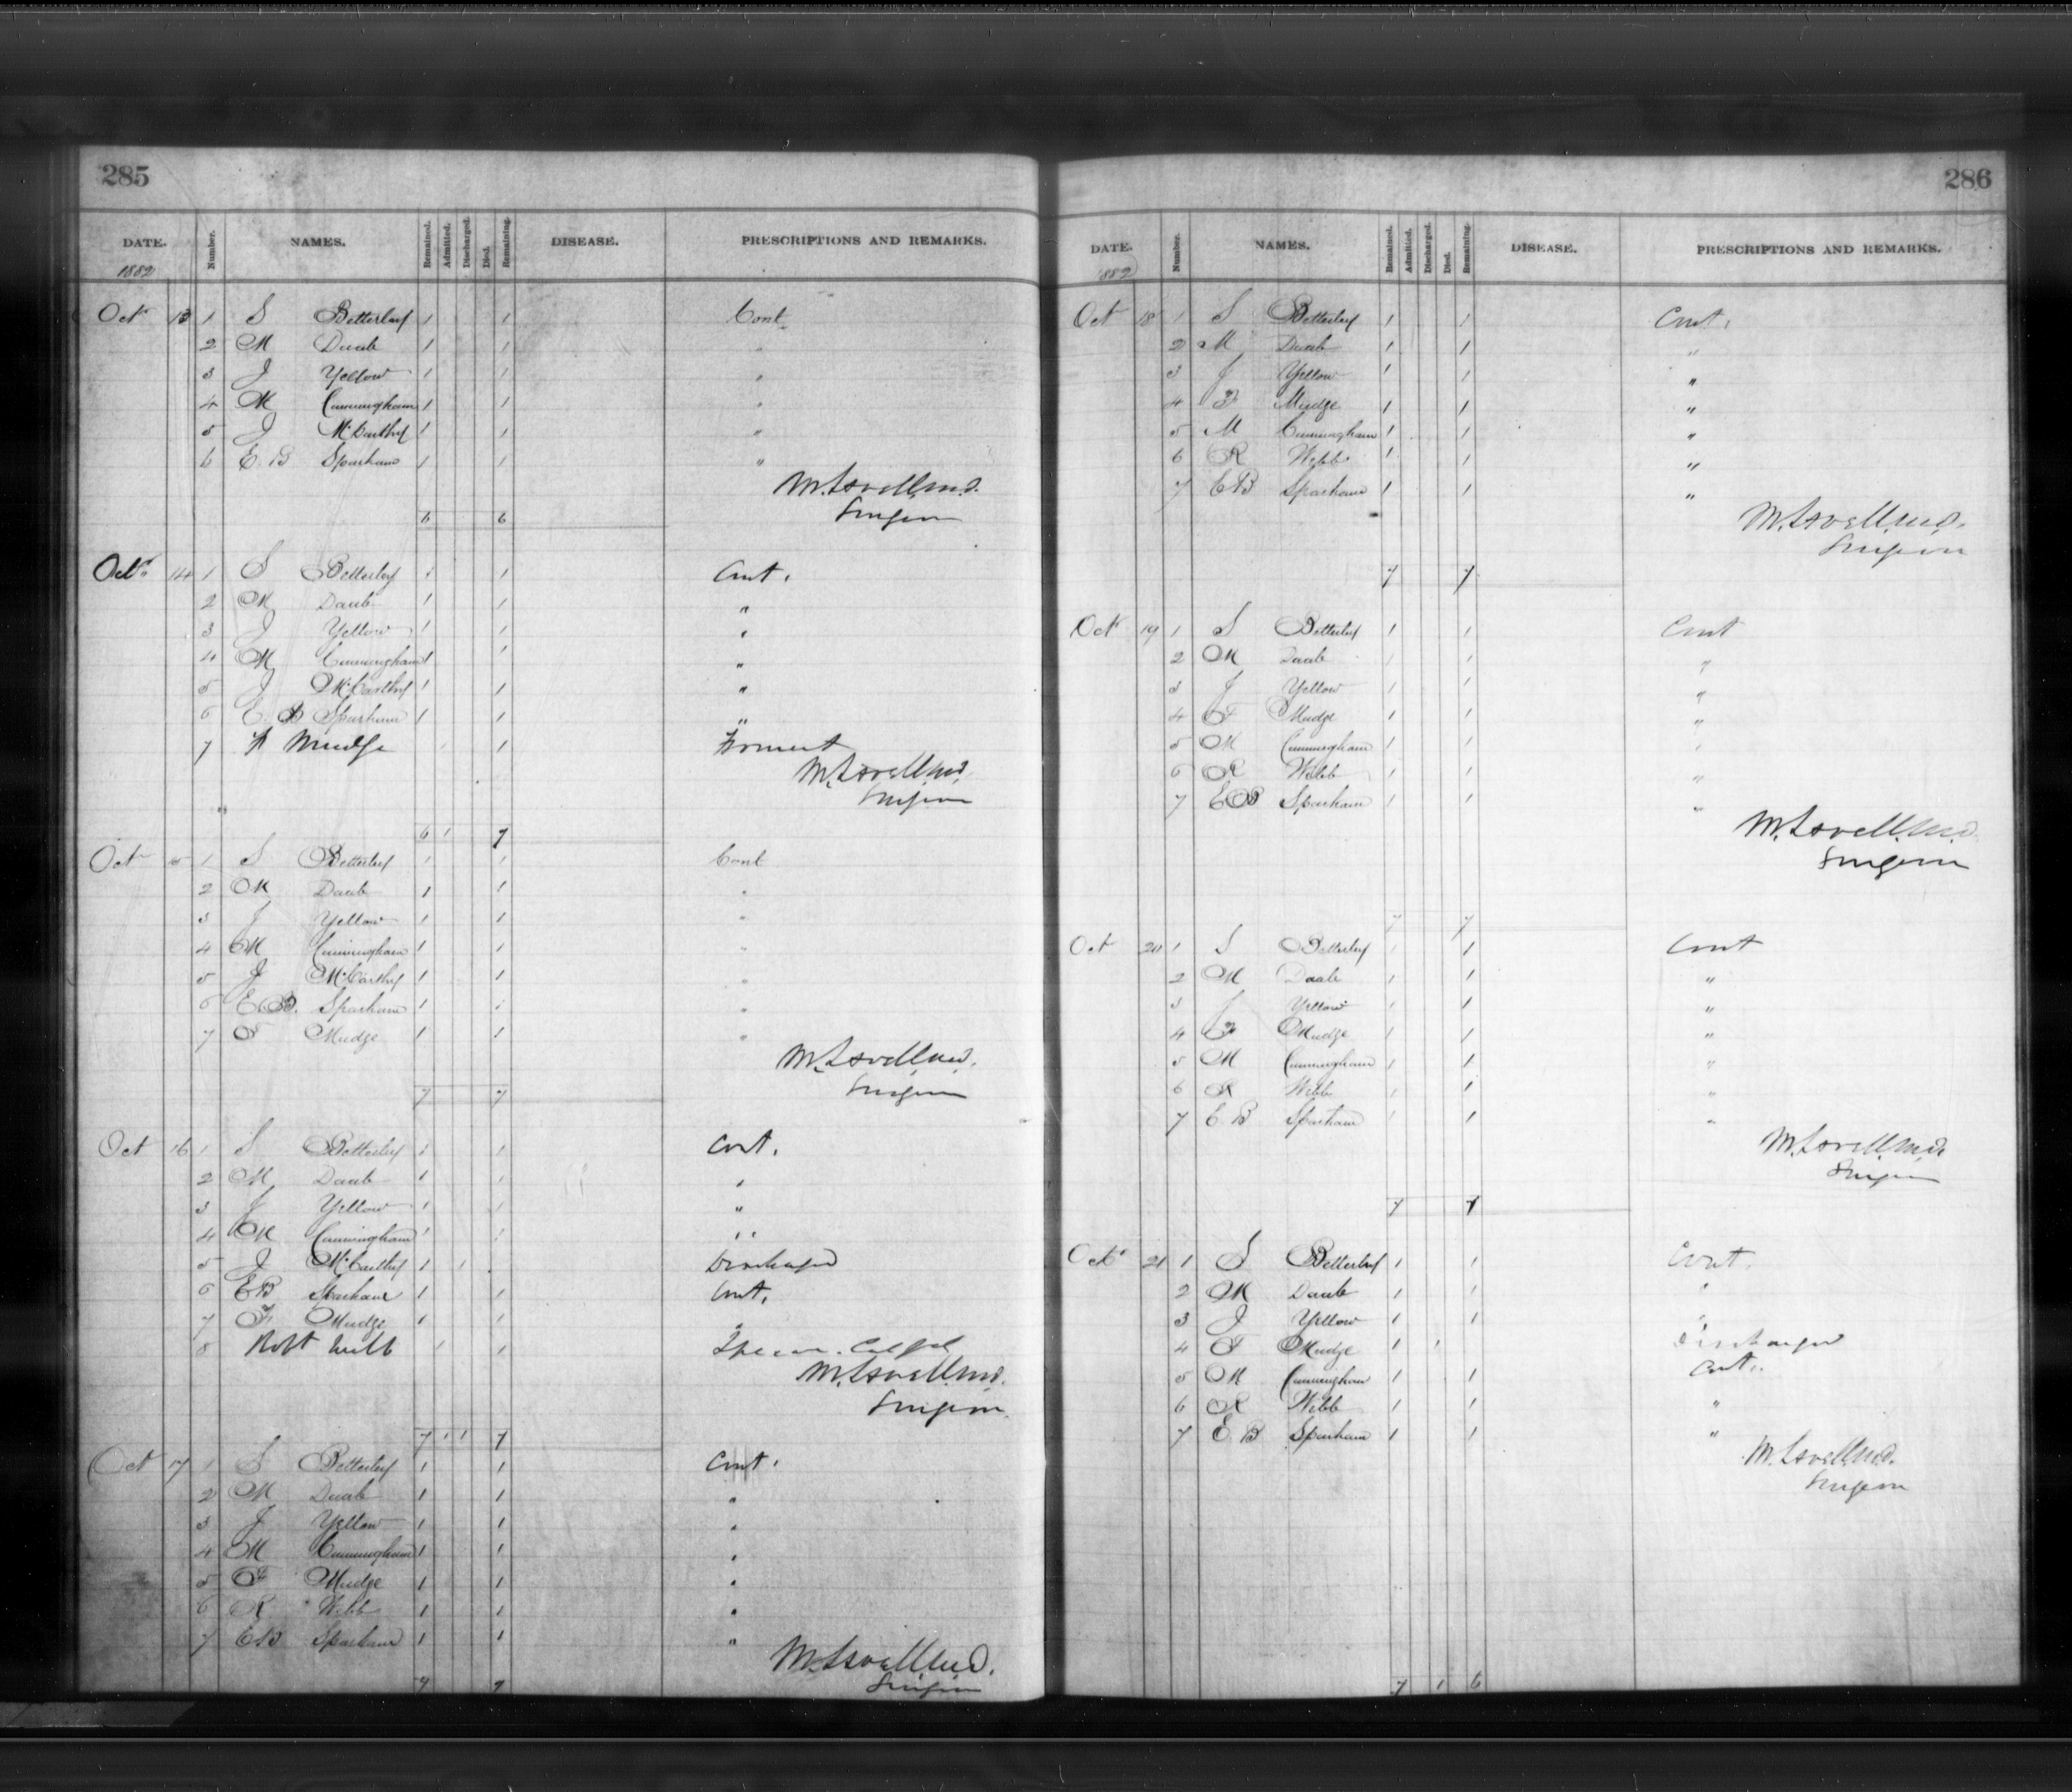 285
DATE. Number. NAMES. Remained. Admitted. Discharged. Died. Remaining. DISEASE. PRESCRIPTIONS AND REMARKS.
1882
Oct 13 1 S Betterley 1 1 Cont.
2 M Daab 1 1 "
3 J Yellow 1 1 "
4 M Cunningham 1 1 "
5 J McCarthy 1 1 "
6 E. B Sparham 1 1 "
M. Lavell, M.D.
Surgeon
6 6
Oct. 14 1 S Betterley 1 1 Cont.
2 M Daab 1 1 "
3 J Yellow 1 1 "
4 M Cunningham 1 1 "
5 J McCarthy 1 1 "
6 E. B Sparham 1 1 "
7 F Mudge 1 1 Foment
M. Lavell, M.D.
Surgeon
6 1 7
Oct 15 1 S Betterley 1 1 Cont
2 M Daab 1 1 "
3 J Yellow 1 1 "
4 M Cunningham 1 1 "
5 J McCarthy 1 1 "
6 E B. Sparham 1 1 "
7 F Mudge 1 1 "
M. Lavell, M.D.
Surgeon
7 7
Oct 16 1 S Betterley 1 1 Cont.
2 M Daab 1 1 "
3 J Yellow 1 1 "
4 M Cunningham 1 1 "
5 J McCarthy 1 1 Discharged
6 E B Sparham 1 1 Cont.
7 F Mudge 1 1 "
8 Robt Webb 1 1
M. Lavell, M.D.
Surgeon.
7 1 1 7
Oct 17 1 S Betterley 1 1 Cont.
2 M Daab 1 1 "
3 J Yellow 1 1 "
4 M Cunningham 1 1 "
5 F Mudge 1 1 "
6 R Webb 1 1 "
7 E B Sparham 1 1 "
M. Lavell, M.D.
Surgeon
7 7
286
DATE. Number. NAMES. Remained. Admitted. Discharged. Died. Remaining. DISEASE. PRESCRIPTIONS AND REMARKS.
1882
Oct 18 1 S Betterley 1 1 Cont.
2 M Daab 1 1 "
3 J Yellow 1 1 "
4 F Mudge 1 1 "
5 M Cunningham 1 1 "
6 R Webb 1 1 "
7 E B Sparham 1 1 "
M. Lavell, M.D.
Surgeon
7 7
Oct 19 1 S Betterley 1 1 Cont
2 M Daab 1 1 "
3 J Yellow 1 1 "
4 F Mudge 1 1 "
5 M Cunningham 1 1 "
6 R Webb 1 1 "
7 E B Sparham 1 1 "
M. Lavell, M.D.
Surgeon
7 7
Oct 20 1 S Betterley 1 1 Cont
2 M Daab 1 1 "
3 J Yellow 1 1 "
4 F Mudge 1 1 "
5 M Cunningham 1 1 "
6 R Webb 1 1 "
7 E. B Sparham 1 1 "
M. Lavell, M.D.
Surgeon
7 7
Oct 21 1 S Betterley 1 1 Cont.
2 M Daab 1 1 "
3 J Yellow 1 1 "
4 F Mudge 1 1 Discharged
5 M Cunningham 1 1 Cont.
6 R Webb 1 1 "
7 E. B Sparham 1 1 "
M. Lavell, M.D.
Surgeon
7 1 6